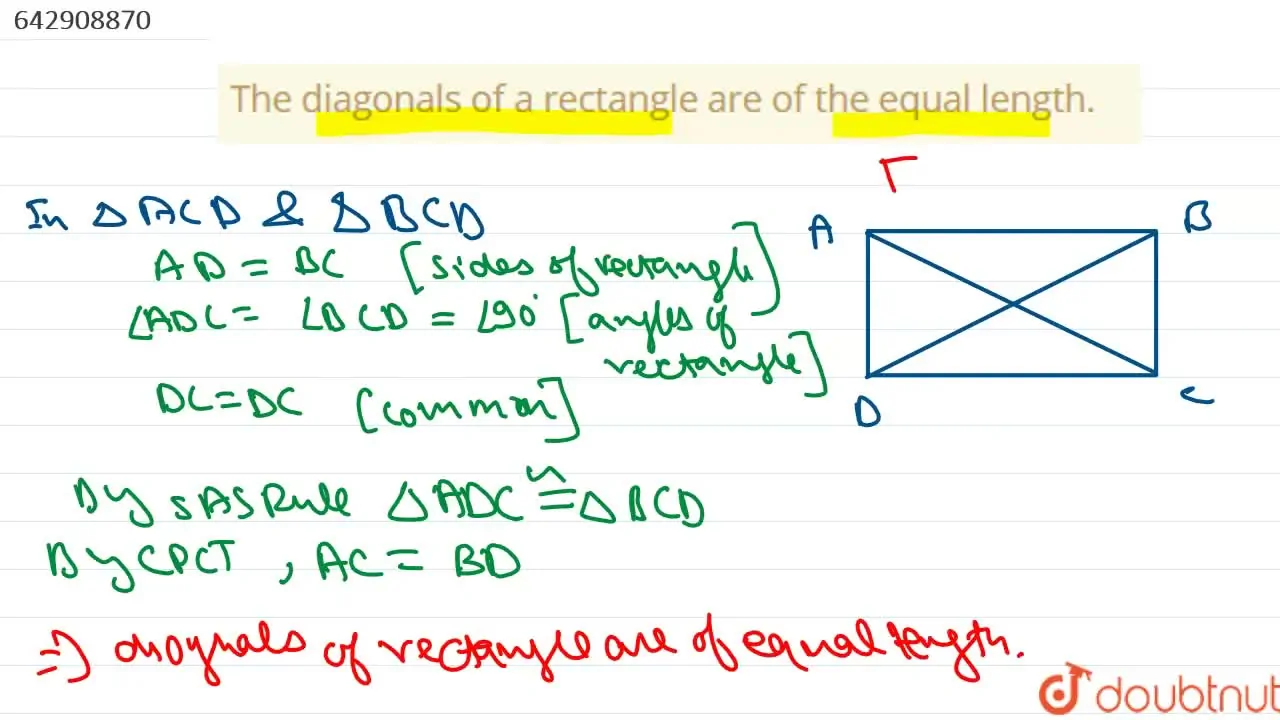 642908870
The diagonals of a rectangle are of the equal length.
In △ ACD & △ BCD
AD = BC [sides of rectangle]
∠ADC = ∠BCD = ∠90° [angles of
rectangle]
DC = DC [common]
By SAS Rule △ ADC ≅ △ BCD
By CPCT, AC = BD
⇒ diagonals of rectangle are of equal length.
A
B
D
C
doubtnut